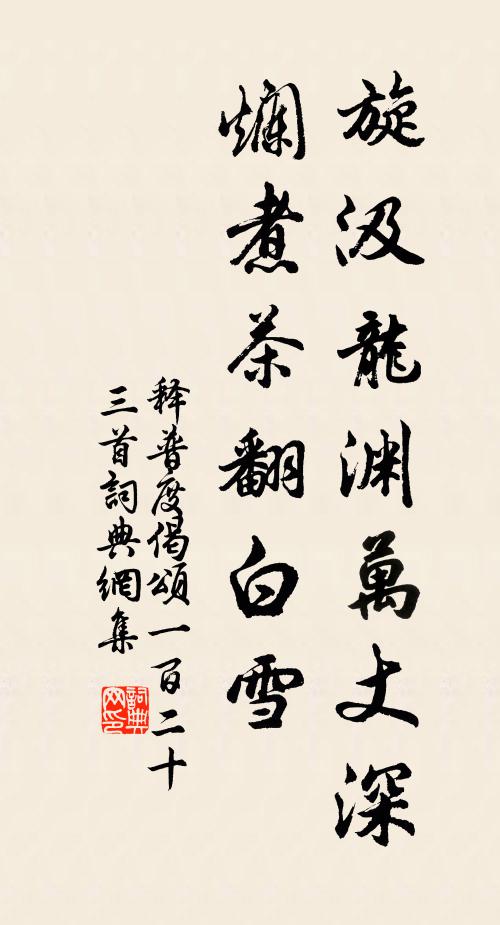 旋汲龍淵萬丈深
爛煮茶翻白雪
释普度偈頌一百二十
三首詞典網集
詞典网印